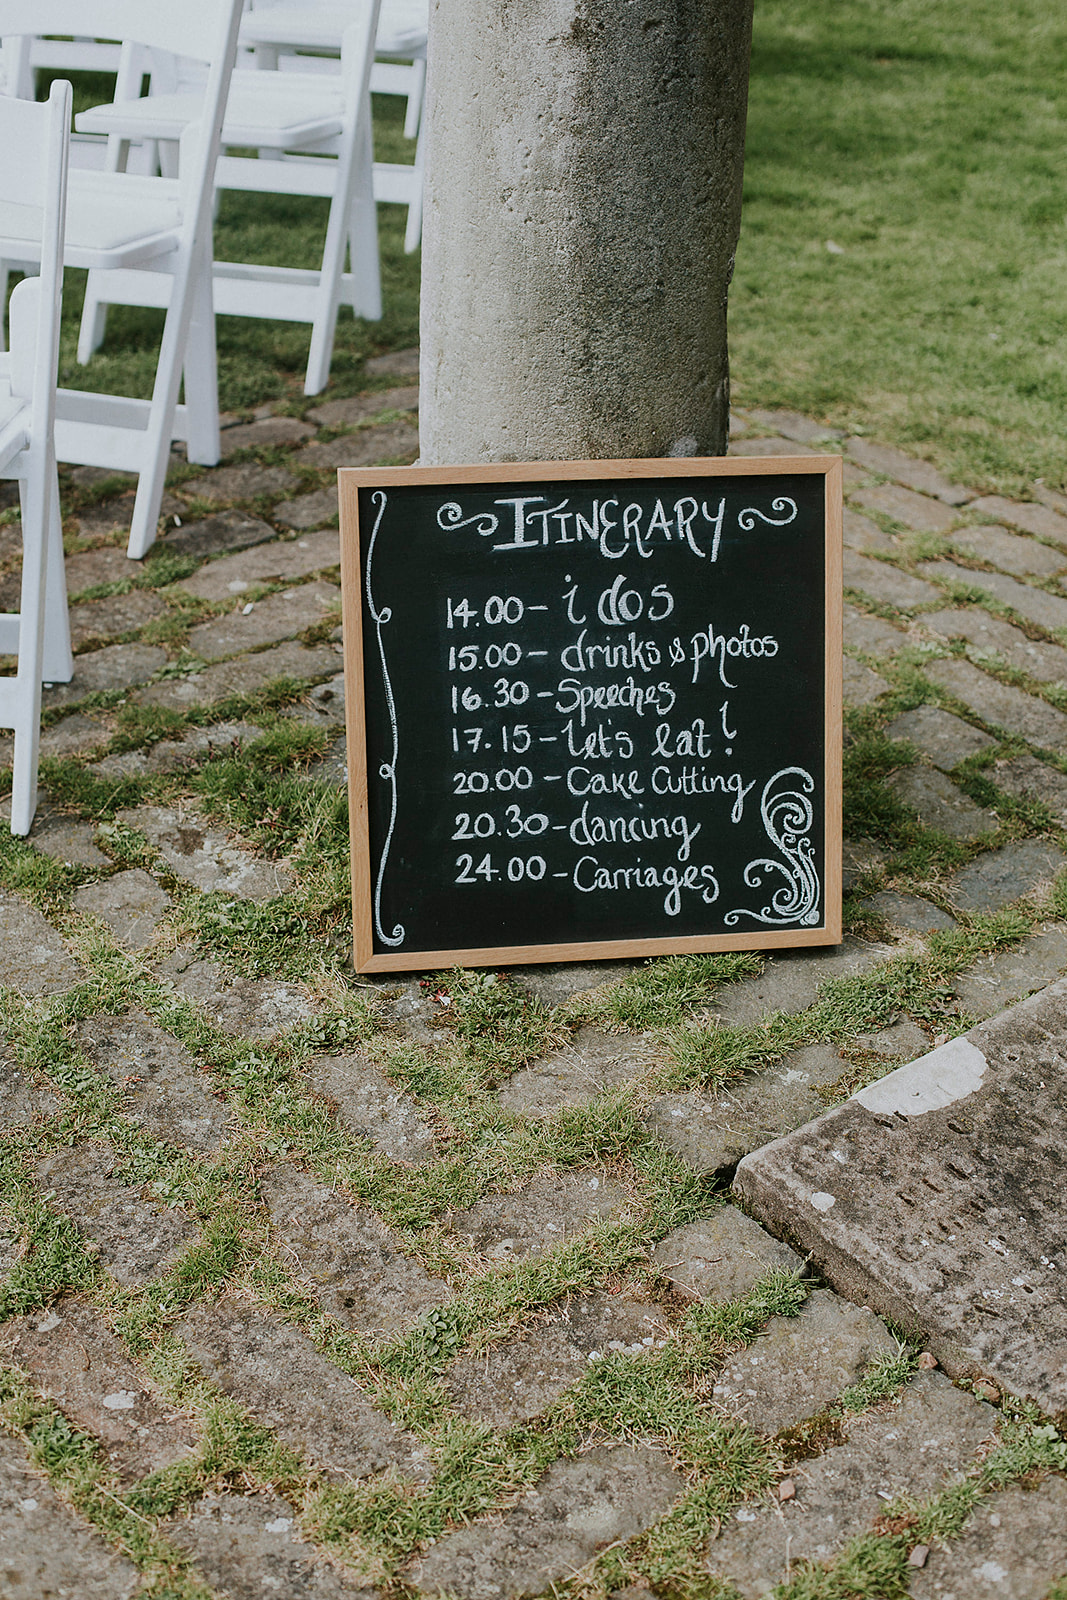 ITINERARY
14.00 - i dos
15.00 - drinks & photos
16.30 - Speeches
17.15 - let's eat!
20.00 - Cake Cutting
20.30 - dancing
24.00 - Carriages